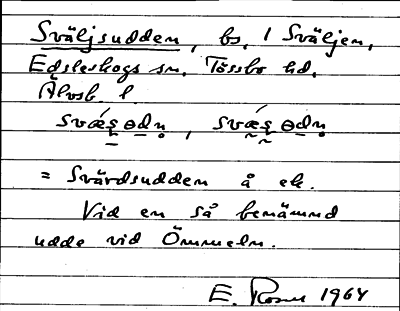 Sväljsudden, bs. i Sväljen,
Edsleskogs sn. Tössbo hd.
Älvsb. l.
= Svärdsudden å ek.
Vid en så benämnd
udde vid Ömmeln.
E. 1964